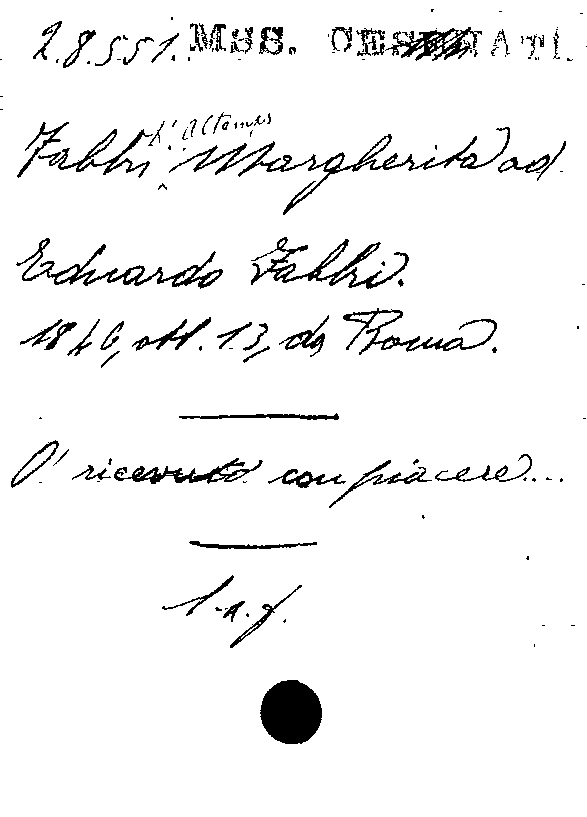 2.8.551. MSS. CESENATI.
d'Altemps
Fabbri Margherita ad
Eduardo Fabbri.
1846, ott. 13, da Roma.
O' ricevuto con piacere...
l.a.f.